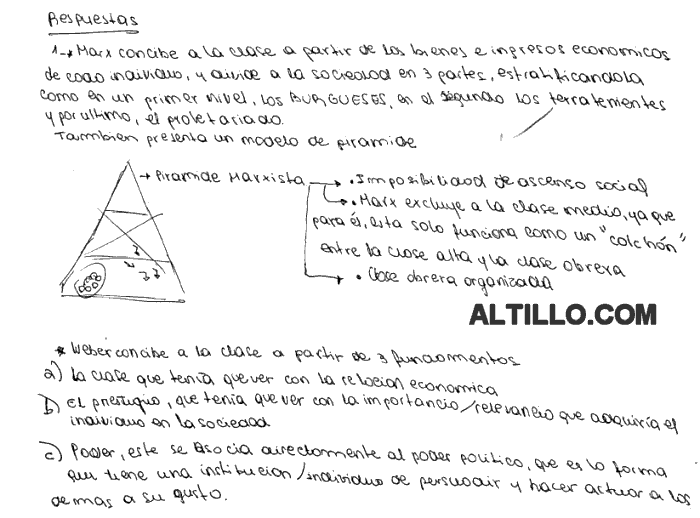 Respuestas
1-→ Marx concibe a la clase a partir de los bienes e ingresos economicos
de cada individuo, y divide a la sociedad en 3 partes, estratificandola
como en un primer nivel, los BURGUESES, en el segundo los terratenientes
y por ultimo, el proletariado.
Tammbien presenta un modelo de piramide
→ Piramide Marxista → • Imposibilidad de ascenso social
• Marx excluye a la clase media, ya que
para él, esta solo funciona como un "colchón"
entre la clase alta y la clase obrera
• Clase obrera organizada
ALTILLO.COM
* Weber concibe a la clase a partir de 3 fundamentos
a) La clase que tenia que ver con la relacion economica
b) El prestigio, que tenia que ver con la importancia/relevancia que adquiría el
individuo en la sociedad
c) Poder, este se asocia directamente al poder politico, que es la forma
que tiene una institucion/individuo de persuadir y hacer actuar a los
demas a su gusto.